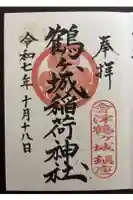 奉拝
会津鶴ヶ城鎮座
鶴ヶ城稲荷神社
令和七年十月十八日